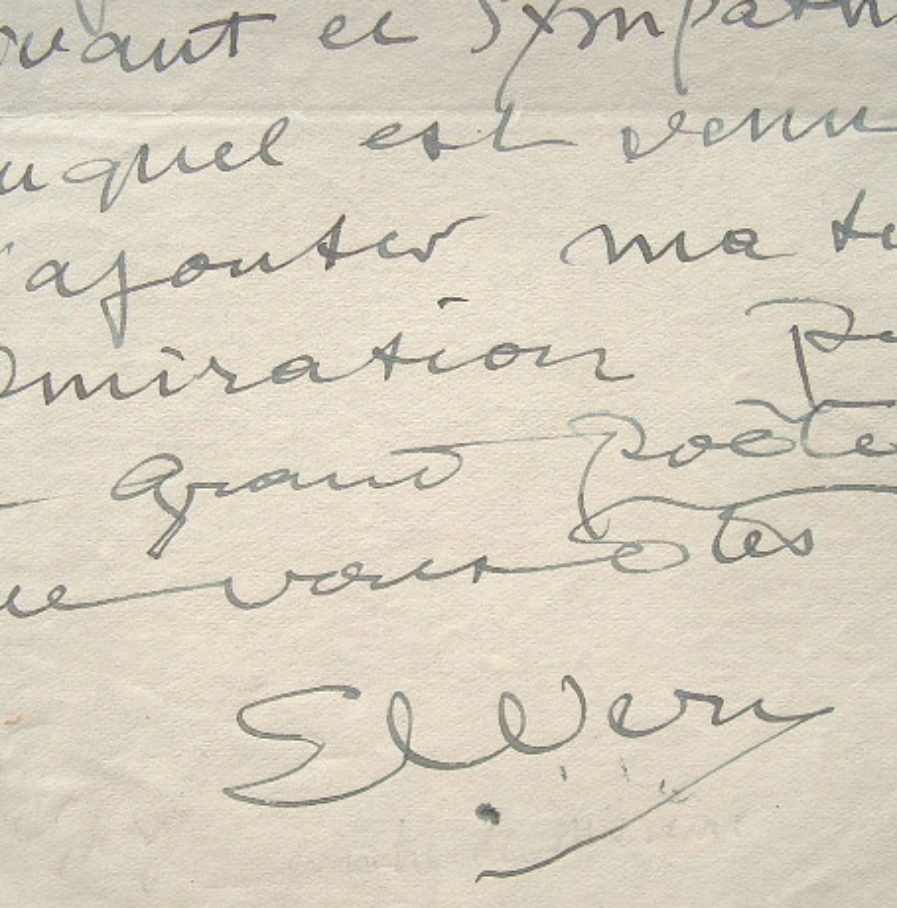 vant et sympath
uquel est venu
'ajouter ma te
dmiration po
grand poète
ue vous êtes
El Vern